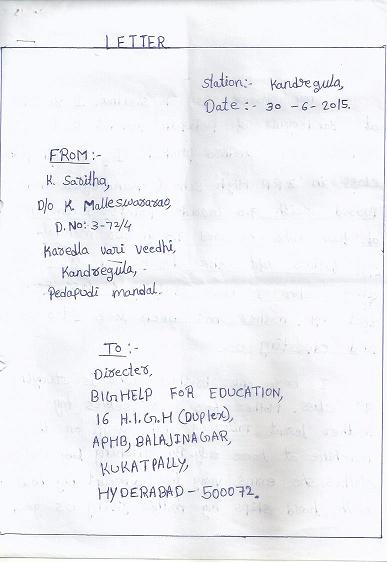 LETTER
Station:- Kandregula,
Date:- 30-6-2015.
FROM:-
K. Saritha,
D/o K. Malleswararao,
D.No:-3-72/4
Karedla vari veedhi,
Kandregula,-
Pedapudi mandal.
To:-
Directer,
BIG HELP FOR EDUCATION,
16 H.I.G.H (Duplex),
APHB, BALAJINAGAR,
KUKATPALLY,
HYDERABAD-500072.